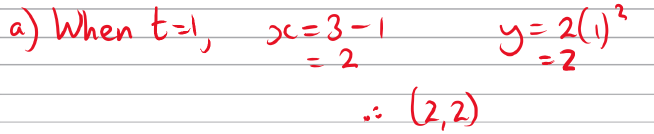 a) When t=1, x=3-1 y=2(1)²
=2 =2
∴ (2,2)